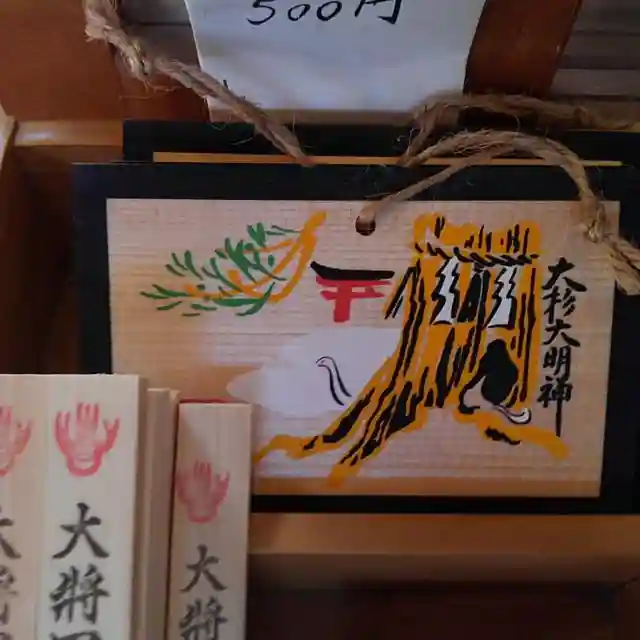 500円
大杉大明神
大將
大將